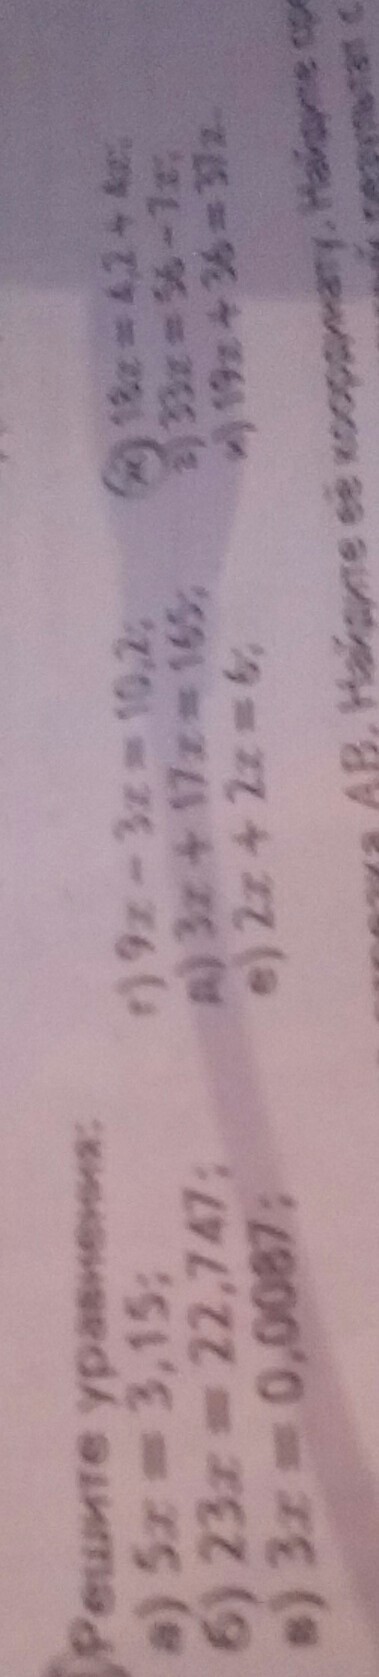 Решите уравнения:
а) 5x = 3,15;
б) 23x = 22,747;
в) 3x = 0,0087;
г) 9x − 3x = 10,2;
д) 3x + 17x = 165;
е) 2x + 2x = 6;
ж) 18x = 4,2 + 4x;
з) 33x = 56 − 7x;
и) 19x + 36 = 37x
АВ. Найдите её координату. Найдите